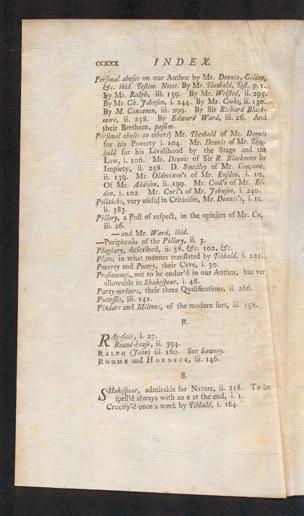 ccxxx INDEX.
Personal abuses on our Author by Mr. Dennis, Gildon,
&c. ibid. Testim. Notes. By Mr. Theobald, Test. p. 1.
By Mr. Ralph, iii. 159. By Mr. Welsted, ii. 295.
By Mr. Ch. Johnson, i. 244. By Mr. Cooke, ii. 130.
By M. Concanen, iii. 299. By Sir Richard Black-
more, ii. 258. By Edward Ward, iii. 26. And
their Brethren, passim.
Personal abuses on others] Mr. Theobald of Mr. Dennis
for his Poverty i. 104. Mr. Dennis of Mr. Theo-
bald for his Livelihood by the Stage and the
Law, i. 106. Mr. Dennis of Sir R. Blackmore for
Impiety, ii. 258. D. Smedley of Mr. Concanen,
ii. 139. Mr. Oldmixon's of Mr. Eusden, i. 10,
Of Mr. Addison, ii. 199. Mr. Cook's of Mr. Eus-
den, i. 102. Mr. Curl's of Mr. Johnson, i. 240.
Politicks, very useful in Criticism, Mr. Dennis's, i. 1c.
ii. 383.
Pillory, a Post of respect, in the opinion of Mr. Cu,
iii. 26.
—and Mr. Ward, ibid.
—Periphrasis of the Pillory, ii. 3.
Plagiary, described, ii. 38, &c. 102, &c.
Plato, in what manner translated by Tibbald, i. 221.
Poverty and Poetry, their Cave, i. 30.
Profaneness, not to be endur'd in our Author, but very
allowable in Shakespear, i. 48.
Party-writers, their three Qualifications, ii. 266.
Poetesses, iii. 141.
Pindars and Miltons, of the modern sort, iii. 158.
R.
RAg-fair, i. 27.
Round-house, ii. 394.
RALPH (John) iii. 160. See Sawney.
ROOME and HORNECK, iii. 146.
S.
SHakespear, admirable for Nature, ii. 218. To be
spell'd always with an e at the end, i. 1.
Crucify'd once a week by Tibbald, i. 164.